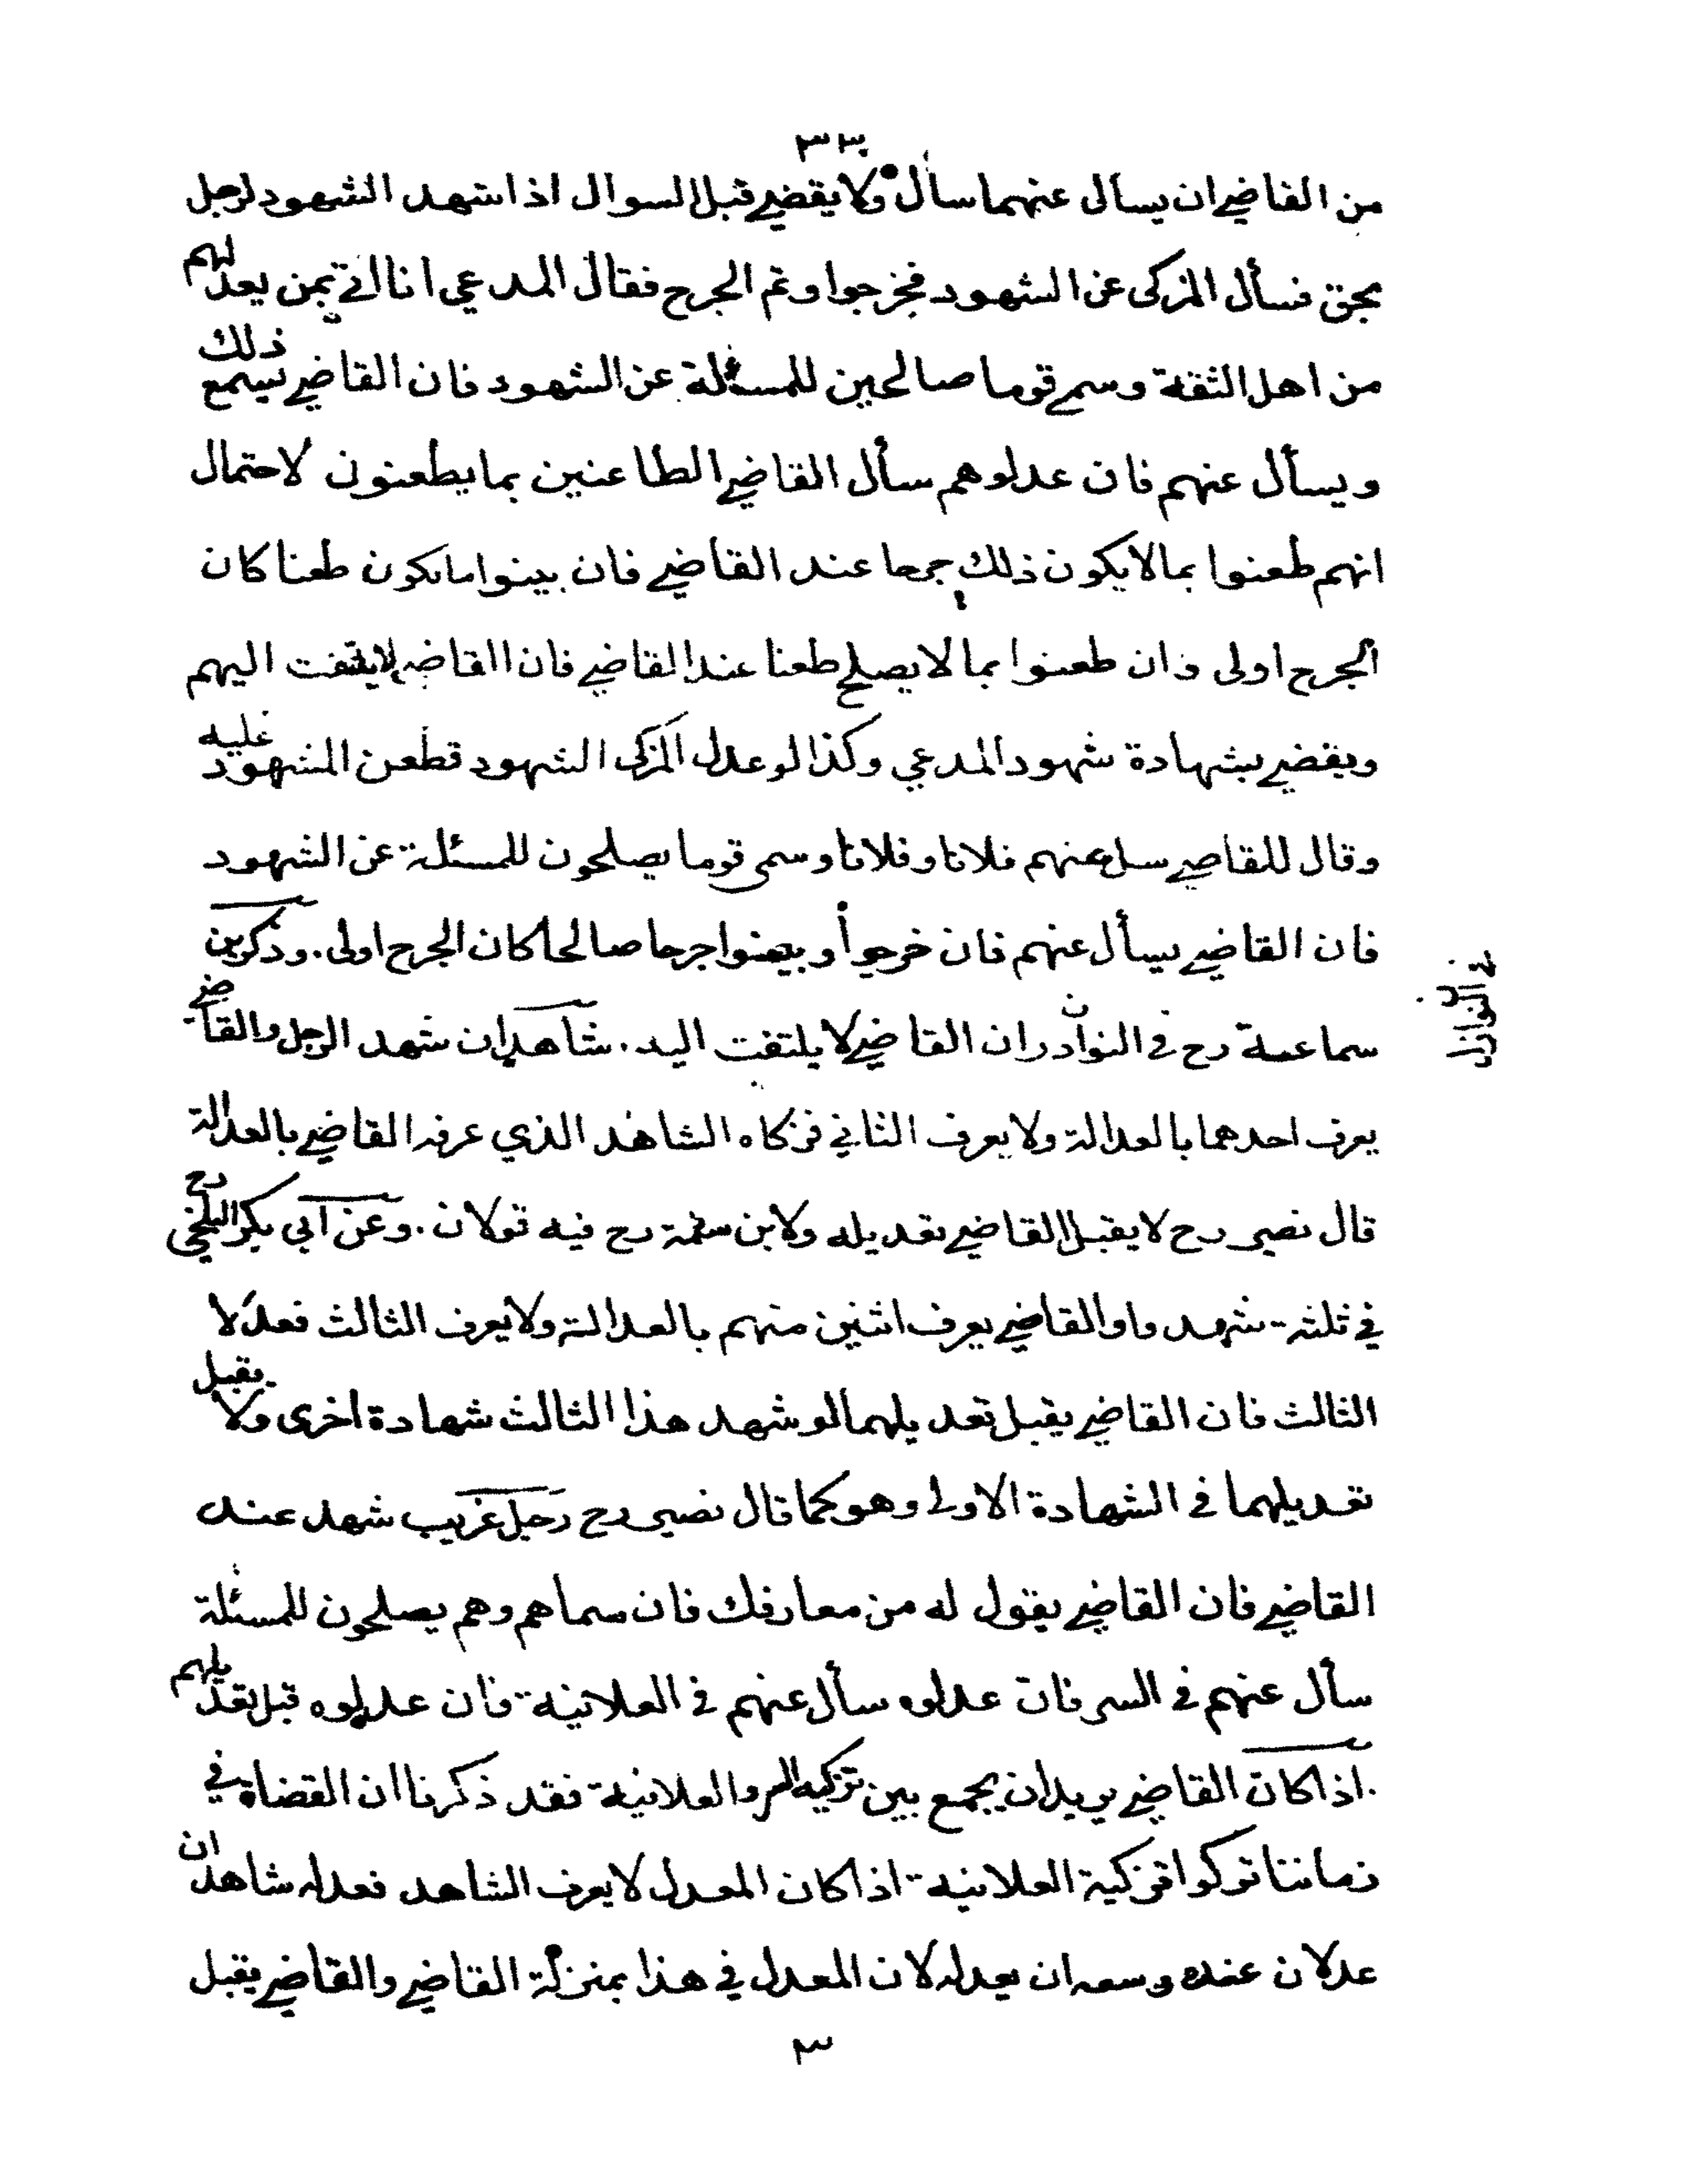 ٣٣
من القاضي ان يسأل عنهما سأل ولا يقضي قبل السوال اذا شهد الشهود لرجل
بحق فسأل المزكى عن الشهود فجرحوا وتم الجرح فقال المدعي انا اتي بمن يعدلهم
من اهل الثقة وسمى قوما صالحين للمسئلة عن الشهود فان القاضي يسمع ذلك
ويسأل عنهم فان عدلوهم سأل القاضي الطاعنين بما يطعنون لاحتمال
انهم طعنوا بما لا يكون ذلك جرحا عند القاضي فان بينوا ما يكون طعنا كان
الجرح اولى وان طعنوا بما لا يصلح طعنا عند القاضي فان القاضي لا يلتفت اليهم
ويقضي بشهادة شهود المدعي وكذا لو عدل المزكى الشهود فطعن المشهود عليه
وقال للقاضي سل عنهم فلانا وفلانا وسمى قوما يصلحون للمسئلة عن الشهود
فان القاضي يسأل عنهم فان جرحوا وبينوا جرحا صالحا كان الجرح اولى. وذكر بن
سماعة رح في النوادر ان القاضي لا يلتفت اليه. شاهدان شهد الرجل والقاضي
في النوازل ن
يعرف احدهما بالعدالة ولا يعرف الثاني فزكاه الشاهد الذي عرفه القاضي بالعدالة
قال نصير رح لا يقبل القاضي تعديله ولابن سلمة رح فيه قولان. وعن ابي بكر البلخي رح
في ثلثة شهدوا والقاضي يعرف اثنين منهم بالعدالة ولا يعرف الثالث فعدلا
الثالث فان القاضي يقبل تعديلهما لو شهد هذا الثالث شهادة اخرى ولا يقبل
تعديلهما في الشهادة الاولى وهو كما قال نصير رح رجل غريب شهد عند
القاضي فان القاضي يقول له من معارفك فان سماهم وهم يصلحون للمسئلة
سأل عنهم في السر فان عدلوه سأل عنهم في العلانية فان عدلوه قبل تعديلهم
اذا كان القاضي يريد ان يجمع بين تزكية السر والعلانية فقد ذكرنا ان القضاة في
زماننا تركوا تزكية العلانية اذا كان المعدل لا يعرف الشاهد فعدله شاهدان
عدلان عنده وسعه ان يعدله لان المعدل في هذا بمنزلة القاضي والقاضي يقبل
٣